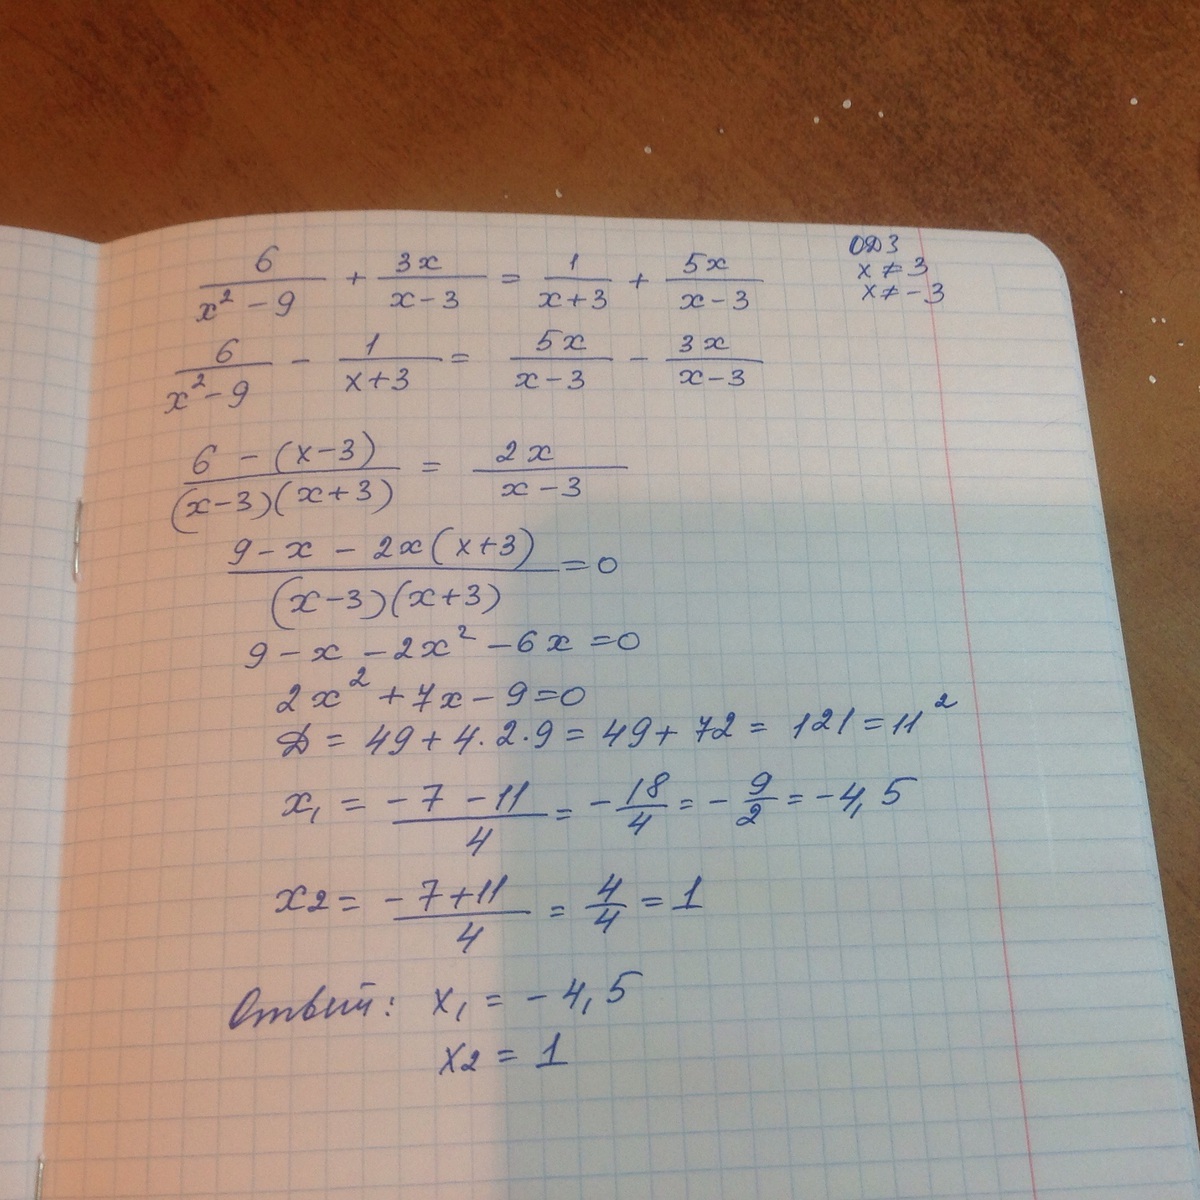 6/(x² - 9) + 3x/(x - 3) = 1/(x + 3) + 5x/(x - 3)
ОДЗ
x ≠ 3
x ≠ - 3
6/(x² - 9) - 1/(x + 3) = 5x/(x - 3) - 3x/(x - 3)
(6 - (x - 3))/((x - 3)(x + 3)) = 2x/(x - 3)
(9 - x - 2x(x + 3))/((x - 3)(x + 3)) = 0
9 - x - 2x² - 6x = 0
2x² + 7x - 9 = 0
D = 49 + 4 · 2 · 9 = 49 + 72 = 121 = 11²
x₁ = (-7 - 11)/4 = -18/4 = -9/2 = -4,5
x2 = (-7 + 11)/4 = 4/4 = 1
Ответ: x₁ = -4,5
x2 = 1